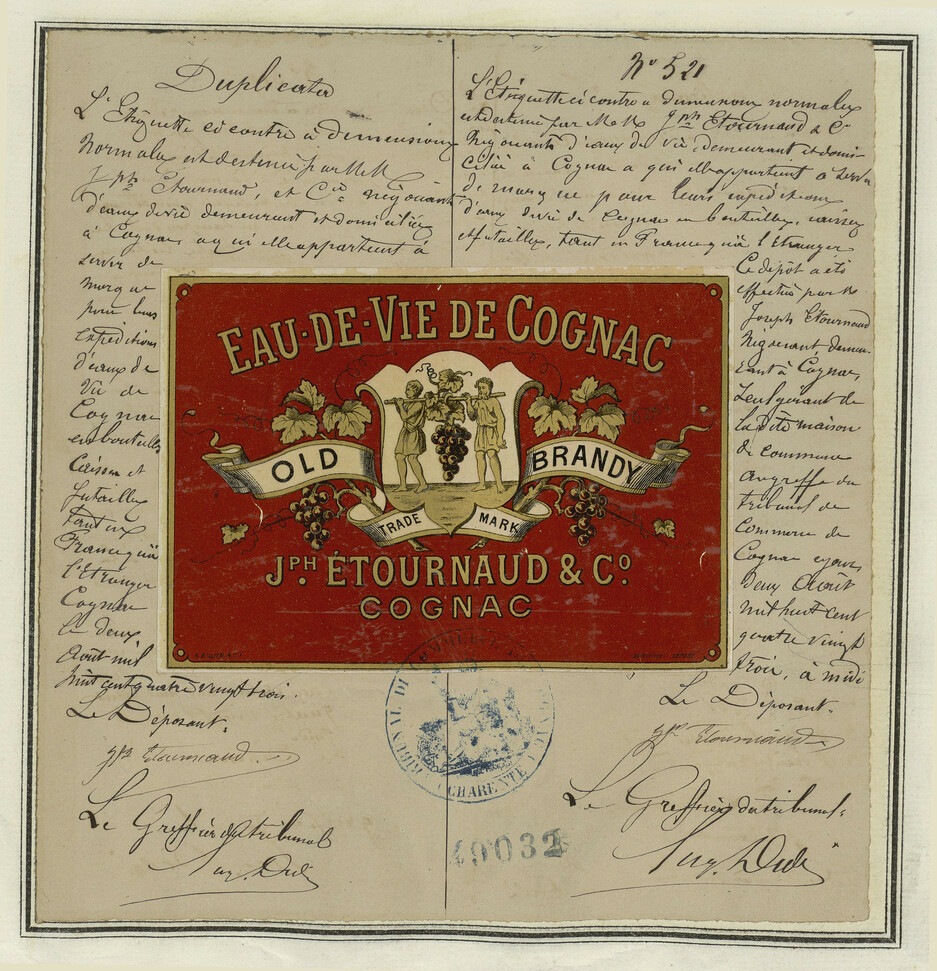 Duplicata
L'Etiquette ci contre à dimensions
Normales est destinée par MM
Jph Etournaud, et Cie négociants
d'eaux de vie demeurant et domiciliés
à Cognac a qui elle appartient à
servir de
marque
pour leurs
expéditions
d'eaux de
Vie de
Cognac
en bouteilles
Caisses et
futailles
tant en
France qu'à
l'Etranger
Cognac
le deux
Août mil
huit cent quatre vingt trois.
Le Déposant.
Jph Etournaud
Le Greffier du tribunal
No 521
L'Etiquette ci contre a dimensions normales
est destinée par M & M Jph Etournaud & Cie
Négociants d'eaux de vie demeurant et domi-
ciliés à Cognac a qui elle appartient a servir
de marque pour leurs expéditions
d'eaux de vie de Cognac en bouteilles, caisses
et futailles, tant en France qu'à l'Etranger
Ce dépôt a été
effectué par M
Joseph Etournaud
Négociant demeu-
rant à Cognac,
seul gérant de
la dite maison
de commerce
au greffe du
tribunal de
Commerce de
Cognac ce jour
deux Août
mil huit cent
quatre vingt
trois, à midi
Le Déposant.
Jph Etournaud
Le Greffier du tribunal.
EAU-DE-VIE DE COGNAC
OLD BRANDY
TRADE MARK
JPH ÉTOURNAUD & Co
COGNAC
TRIBUNAL DE
CHARENTE
49032